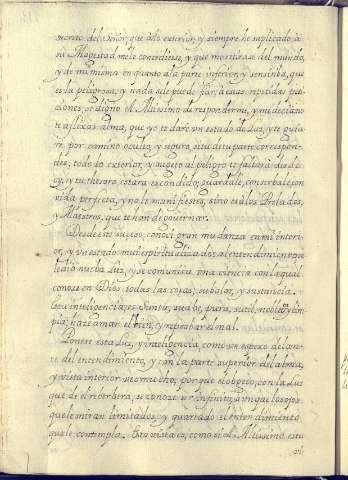 secreto del señor, que a lo exterior, y siempre he suplicado a
su Magestad me le concediese, y que mortirase del mundo,
y de mi misma en quanto a la parte inferior, y sensitiva, que
es la peligrosa, y nada se le puede fiar, a estas repetidas peti-
ciones, se digno el Altissimo de responderme, y me decia no
te aflixas alma, que yo te daré un estado de Luz, y te guia-
re por camino oculto, y seguro, si tu de tu parte correspon-
des, todo lo exterior, y sugeto al peligro te faltara desde
oy, y tu thesoro estara escondido, guardale, conserbale con
vida perfecta, y no le manifiestes, sino es a los Prelados,
y Maestros, que te han de governar.
Desde este suceso, conoci gran mudanza en mi interi-
or, y un estado mui espiritualizado, al entendimiento se
le dio nueba Luz, y se comunico una ciencia con la qual
conoce en Dios todas las cosas, su balor, y sustancia.
Esta inteligencia, es santa, suabe, pura, sutil, noble, y lim-
pia, haze amar el bien, y reprobar el mal.
Ponese esta Luz, y inteligencia como un espexo delan-
te del entendimiento, y con la parte superior del alma,
y vista interior veo mucho, porque el objeto, con la Luz
que de el reberbera, se conoze ser Infinito, aunque los ojos
que le miran limitados, y quartado el entendimiento
que le contempla. Esta vista es, como si el Altissimo estu